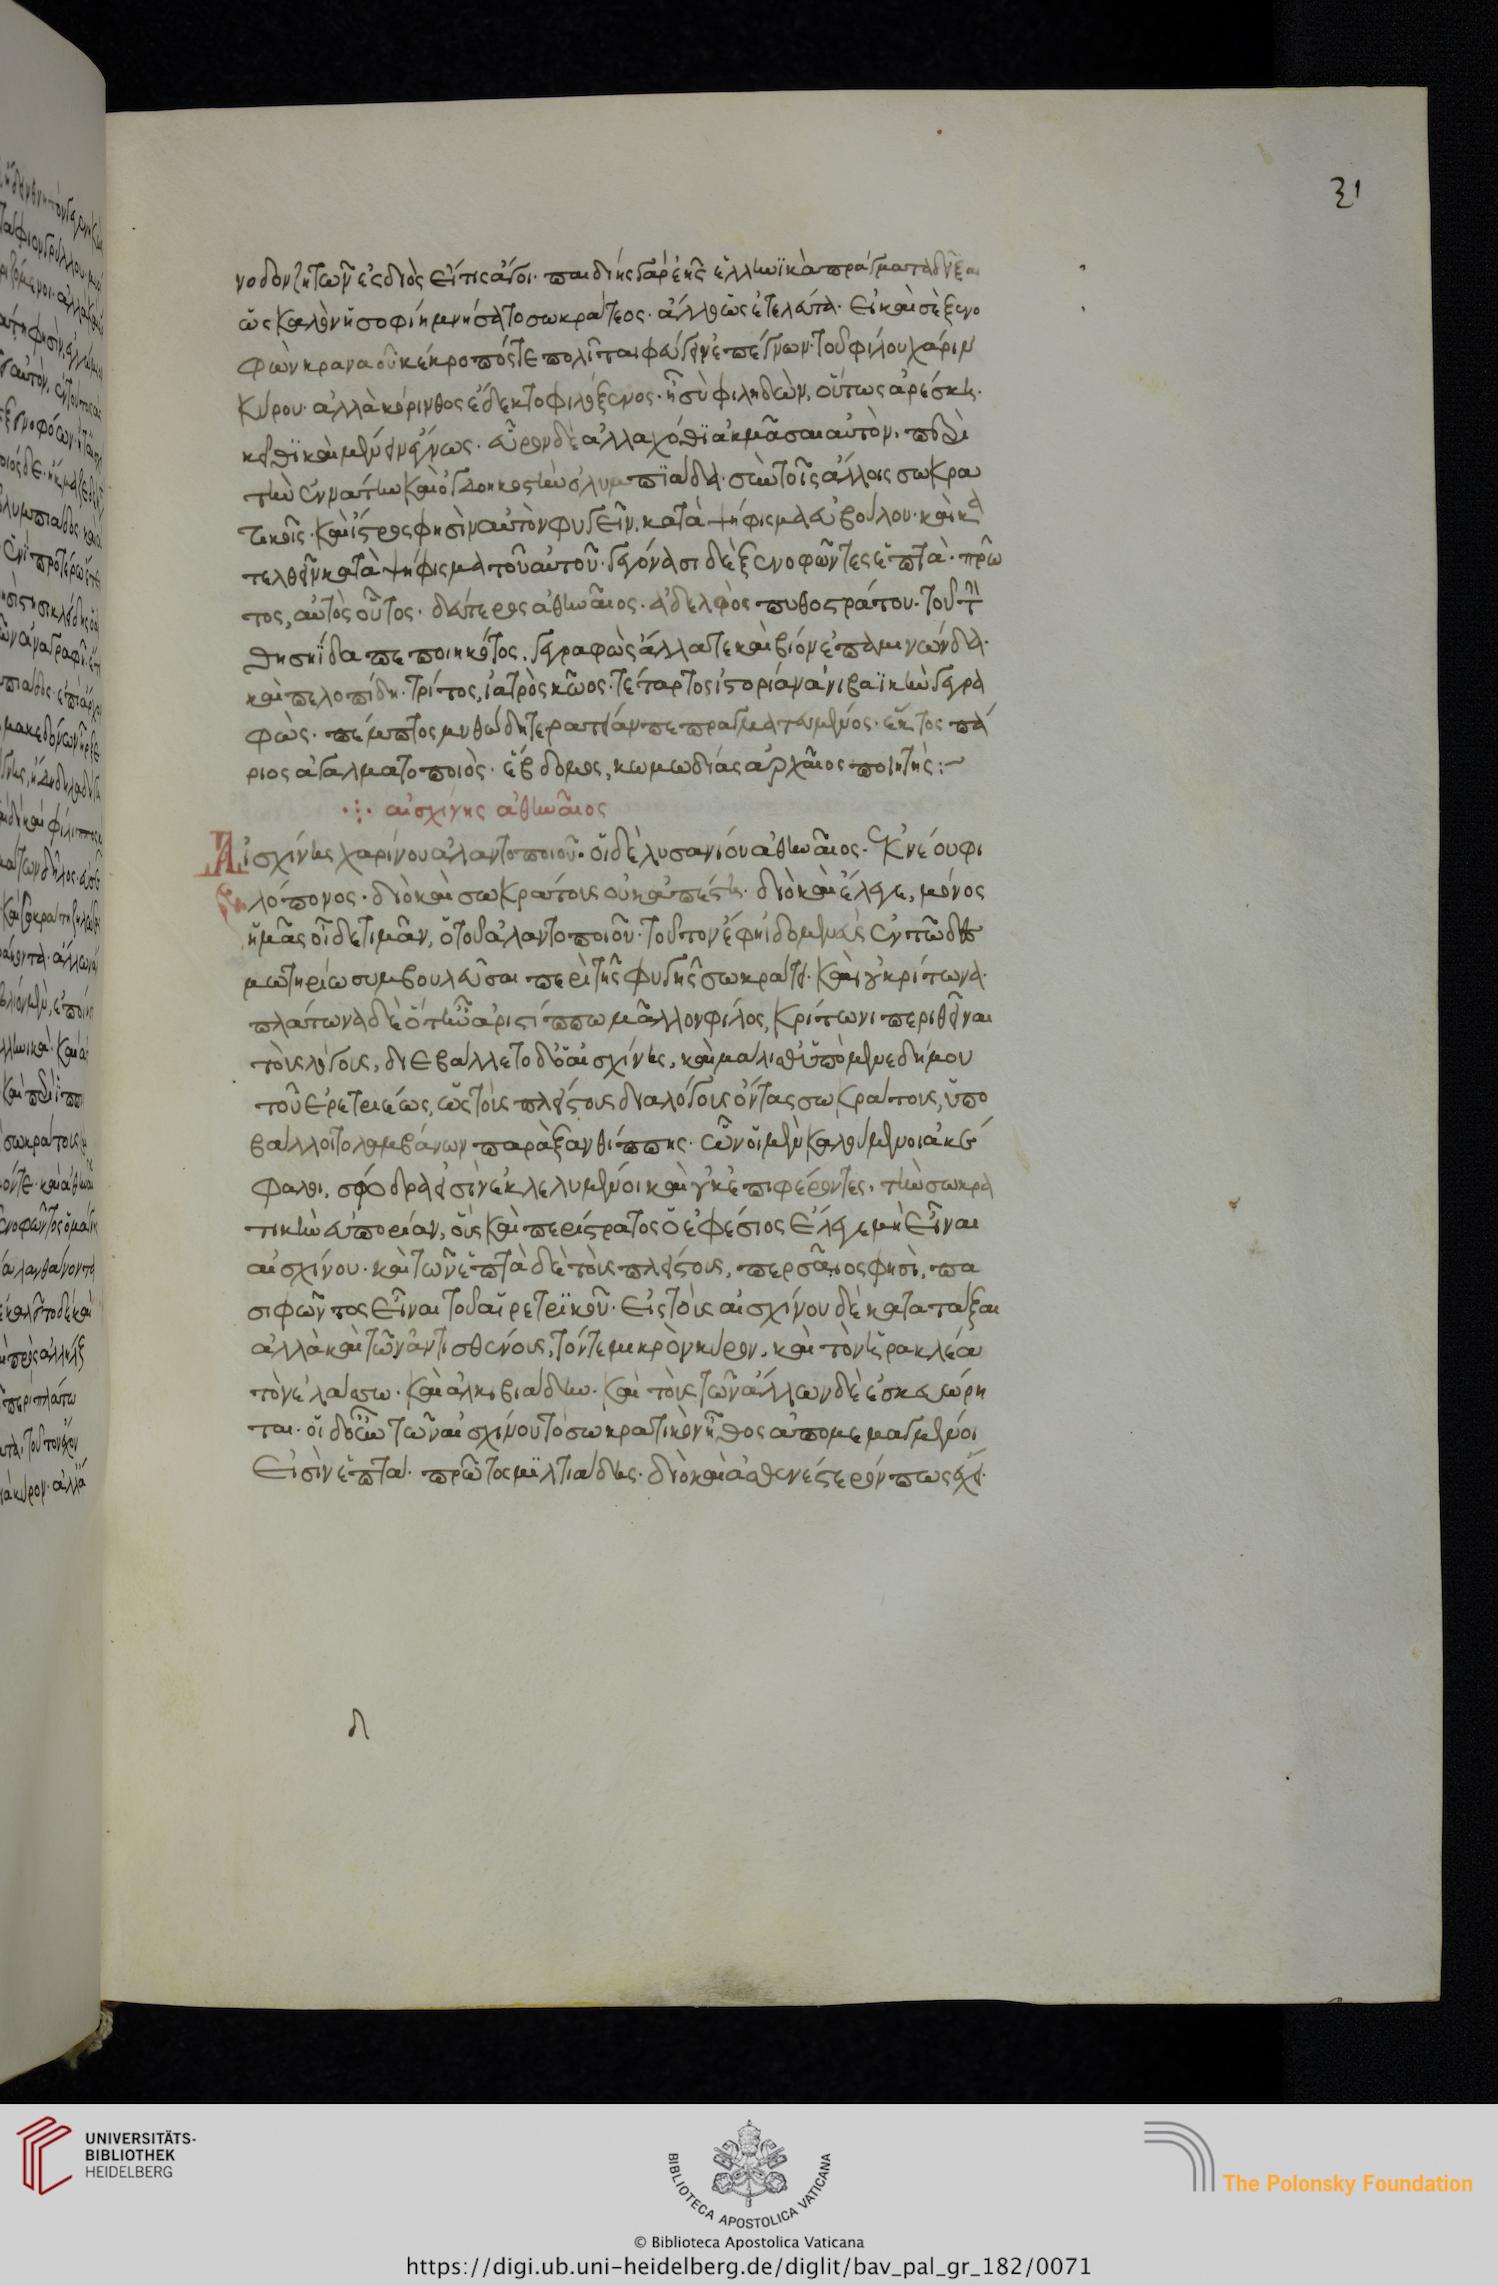 31
νοδον ζητῶν ἐς διὸς εἴτις ἄγοι· παιδείης γὰρ ἑῆς ἑλληνϊκὰ πράγματα δείξαι
ὡς καλὸν ἡ σοφίη μνήσατο σωκράτεος· ἄλλο ὡς ἐτελεύτα· εἰ καὶ σὲ ξενο
φῶν κραναοῦ κέκροπός τε πολῖται φεύγειν ἐπέγνων· τοῦ φίλου χάριν
κύρου· ἀλλὰ κόρινθος ἔδεκτο φιλόξενος· ἧ σὺ φιληδεῶν, οὕτως ἀρέσκῃ·
κεῖθϊ καὶ μένειν ἔγνως· εὗρον δὲ ἀλλαχόθϊ ἀκμᾶσαι αὐτὸν, περὶ
τὴν ἐνάτην καὶ ὀγδοηκοστὴν ὀλυμπϊάδα· σὺν τοῖς ἄλλοις σωκρα
τικοῖς· καὶ ἴστρος φησὶν αὐτὸν φυγεῖν, κατὰ ψήφισμα εὐβούλου· καὶ κα
τελθεῖν κατὰ ψήφισμα τοῦ αὐτοῦ· γεγόνασι δὲ ξενοφῶντες ἑπτὰ· πρῶ
τος, αὐτὸς οὗτος· δεύτερος ἀθηναῖος· ἀδελφὸς πυθοστράτου· τοῦ τὴν
θησηΐδα πεποιηκότος, γεγραφὼς ἄλλα τε καὶ βίον ἐπαμινώνδα·
καὶ πελοπίδη· τρίτος, ἰατρὸς κῶος· τέταρτος ἱστορίαν ἀνιβαϊκὴν γεγρα
φώς· πέμπτος μυθώδη τερατείαν πεπραγματευμένος· ἕκτος πά
ριος ἀγαλματοποιὸς· ἕβδομος, κωμωδίας ἀρχαῖος ποιητής:~
αἰσχίνης ἀθηναῖος
Αἰσχίνης χαρίνου ἀλαντοποιοῦ· οἱ δὲ λυσανίου ἀθηναῖος· ἐκ νέου φι
λόπονος· διὸ καὶ σωκράτους οὐκ ἀπέστη· διὸ καὶ ἔλεγε, μόνος
ἡμᾶς οἶδε τιμᾶν, ὁ τοῦ ἀλαντοποιοῦ· τοῦτον ἔφη ἰδομενεὺς ἐν τῶ δε
μωτηρίω συμβουλεῦσαι περὶ τῆς φυγῆς σωκράτει· καὶ οὐ κρίτωνα·
πλάτωνα δὲ ὅτι ἦν ἀριστίππω μᾶλλον φίλος, κρίτωνι περιθεῖναι
τοὺς λόγους, διεβάλλετο δὲ ὁ αἰσχίνης, καὶ μάλισθ' ὑπὸ μενεδήμου
τοῦ ἐρετριέως, ὡς τοὺς πλείστους διαλόγους ὄντας σωκράτους, ὑπο
βάλλοιτο λαμβάνων παρὰ ξανθίππης· ὧν οἱ μὲν καλούμενοι ἀκέ
φαλοι, σφόδρα εἰσὶν ἐκλελυμένοι καὶ οὐκ ἐπιφέροντες, τὴν σωκρα
τικὴν εὐτορίαν, οὓς καὶ περίστρατος ὁ ἐφέσιος ἔλεγε μὴ εἶναι
αἰσχίνου· καὶ τῶν ἑπτὰ δὲ τοὺς πλείστους, περσαῖος φησὶ, πα
σιφῶντος εἶναι τοῦ αἱρετρϊκοῦ· εἰς τοὺς αἰσχίνου δὲ κατατάξαι
ἀλλὰ καὶ τῶν ἀντισθένους, τόν τε μικρὸν κύρον, καὶ τὸν ἡρακλέα
τὸν ἐλάσσω· καὶ ἀλκιβιάδην· καὶ τοὺς τῶν ἄλλων δὲ ἐσκευώρη
ται· οἱ δ' οὖν τῶν αἰσχίνου τὸ σωκρατικὸν ἦθος ἀπομεμαγμένοι
Εἰσὶν ἑπτά· πρῶτος μϊλτιάδης· διὸ καὶ ἀσθενέστερόν πως ἔχει·
UNIVERSITÄTS-
BIBLIOTHEK
HEIDELBERG
BIBLIOTECA APOSTOLICA VATICANA
The Polonsky Foundation
© Biblioteca Apostolica Vaticana
https://digi.ub.uni-heidelberg.de/diglit/bav_pal_gr_182/0071